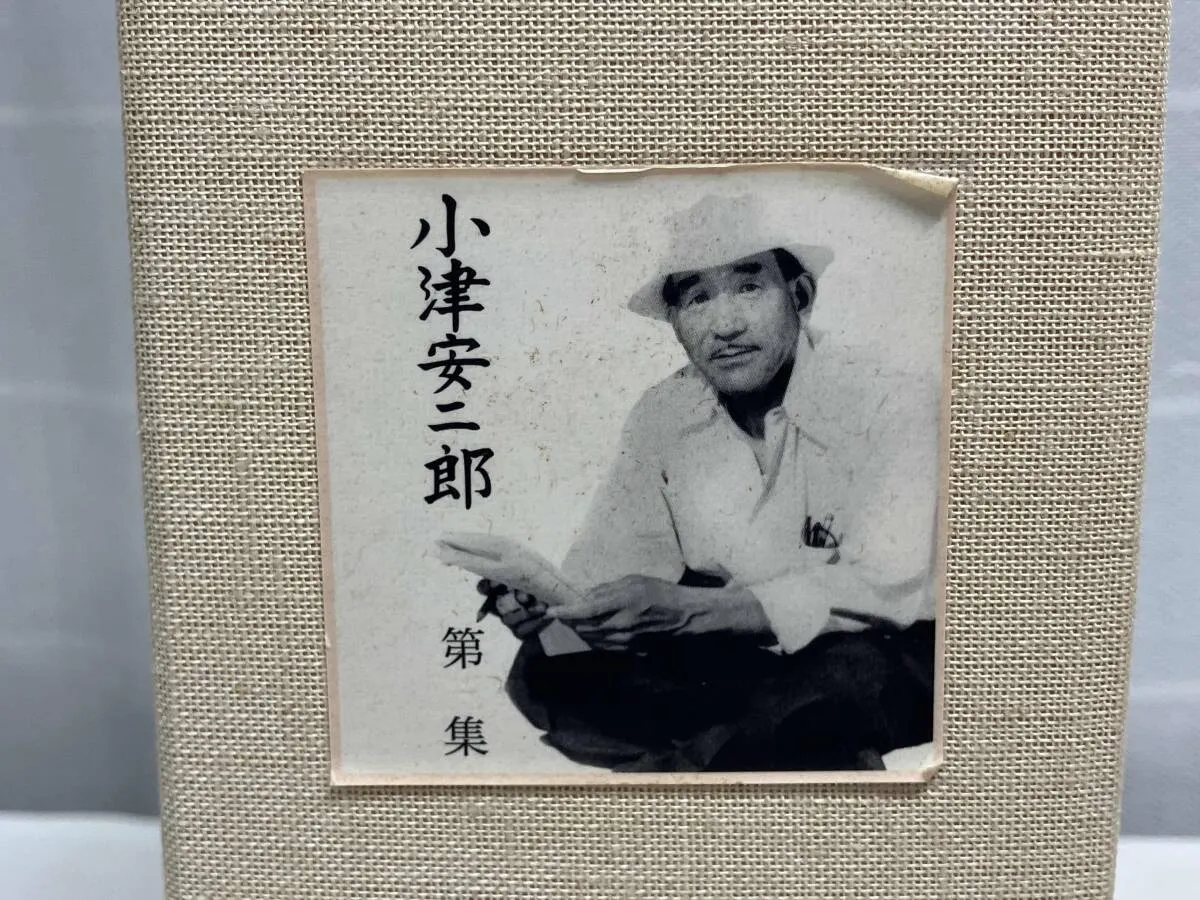 小津安二郎
第 集